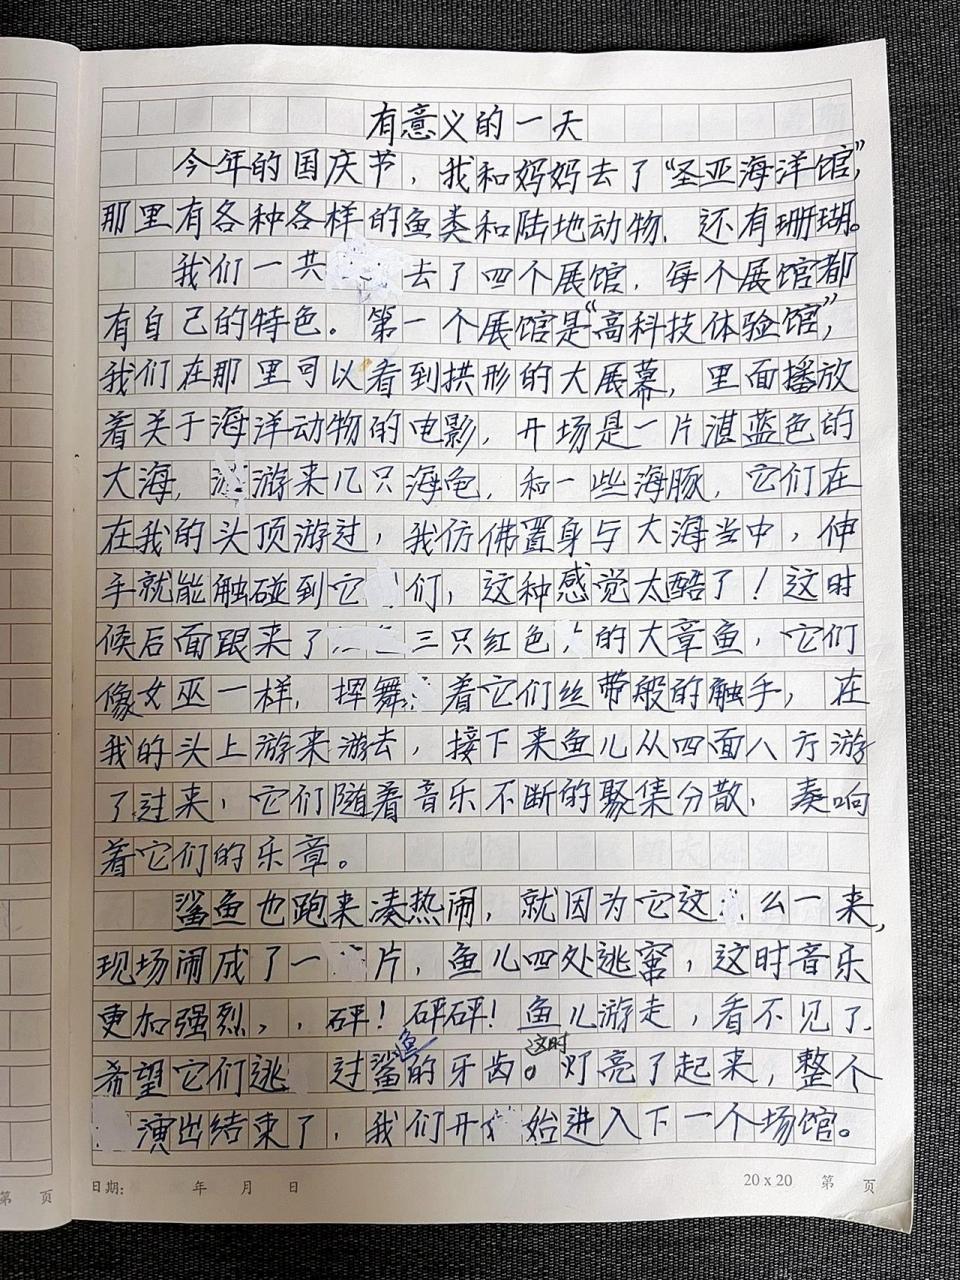 有意义的一天
今年的国庆节，我和妈妈去了“圣亚海洋馆”，
那里有各种各样的鱼类和陆地动物，还有珊瑚。
我们一共去了四个展馆，每个展馆都
有自己的特色。第一个展馆是“高科技体验馆”，
我们在那里可以看到拱形的大展幕，里面播放
着关于海洋动物的电影，开场是一片湛蓝色的
大海，游来几只海龟，和一些海豚，它们在
在我的头顶游过，我仿佛置身与大海当中，伸
手就能触碰到它们，这种感觉太酷了！这时
候后面跟来了三只红色的大章鱼，它们
像女巫一样，挥舞着它们丝带般的触手，在
我的头上游来游去，接下来鱼儿从四面八方游
了过来，它们随着音乐不断的聚集分散，奏响
着它们的乐章。
鲨鱼也跑来凑热闹，就因为它这么一来，
现场闹成了一片，鱼儿四处逃窜，这时音乐
更加强烈，，砰！砰砰！鱼儿游走，看不见了.
希望它们逃过鲨鱼的牙齿。这时灯亮了起来，整个
演出结束了，我们开始进入下一个场馆。
第 页
日期： 年 月 日
20 x 20 第 页